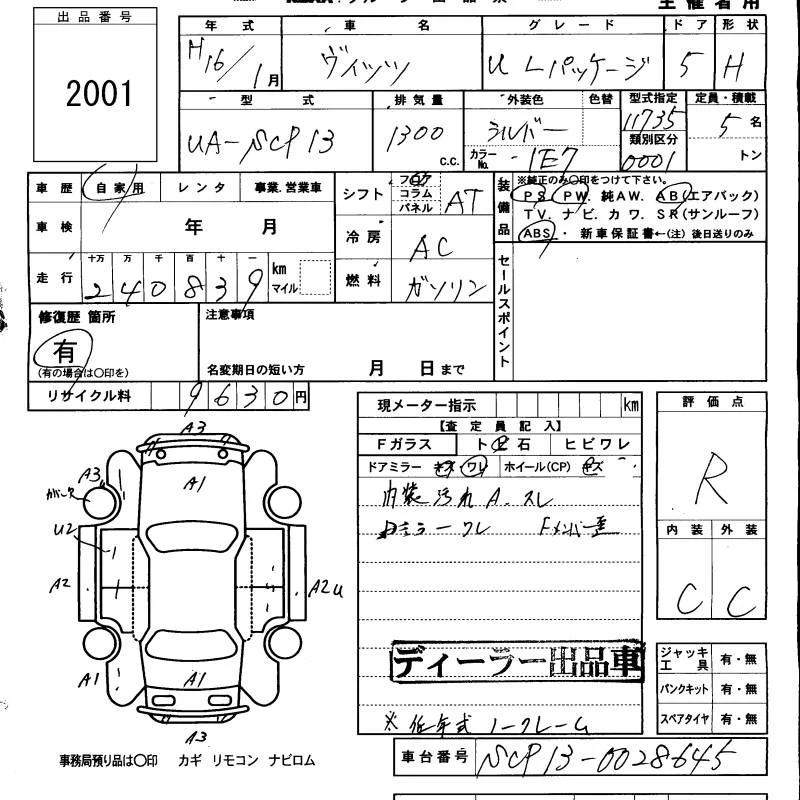 出品番号
2001
年式 車名 グレード ドア 形状
H16/1月 ヴィッツ U Lパッケージ 5 H
型式 排気量 外装色 色替 型式指定 定員・積載
UA-SCP13 1300 c.c. シルバー 11735 5名
カラーNo. 1E7 類別区分 0001 トン
車歴 自家用 レンタ 事業.営業車
シフト フロア コラム パネル AT
装備品 ※純正のみ○印をつけて下さい。
PS. PW. 純AW. AB(エアバック)
TV. ナビ. カワ. SR(サンルーフ)
ABS・ 新車保証書←(注) 後日送りのみ
車検 年 月
冷房 AC
走行 十万 万 千 百 十 一 km マイル
240839
燃料 ガソリン
セールスポイント
修復歴 箇所
有
(有の場合は○印を)
注意事項
名変期日の短い方 月 日まで
リサイクル料 9630円
現メーター指示 km
【査定員記入】
Fガラス ト石 ヒビワレ
ドアミラー キズ ワレ ホイール(CP) キズ
内装汚れ A.スレ
ミラーワレ Fメンバー歪
評価点
R
内装 外装
C C
A3
A1
A3
U2
A2
A2U
A1
A1
A3
ディーラー出品車
ジャッキ工具 有・無
パンクキット 有・無
スペアタイヤ 有・無
事務局預り品は○印 カギ リモコン ナビロム
車台番号 SCP13-0028645